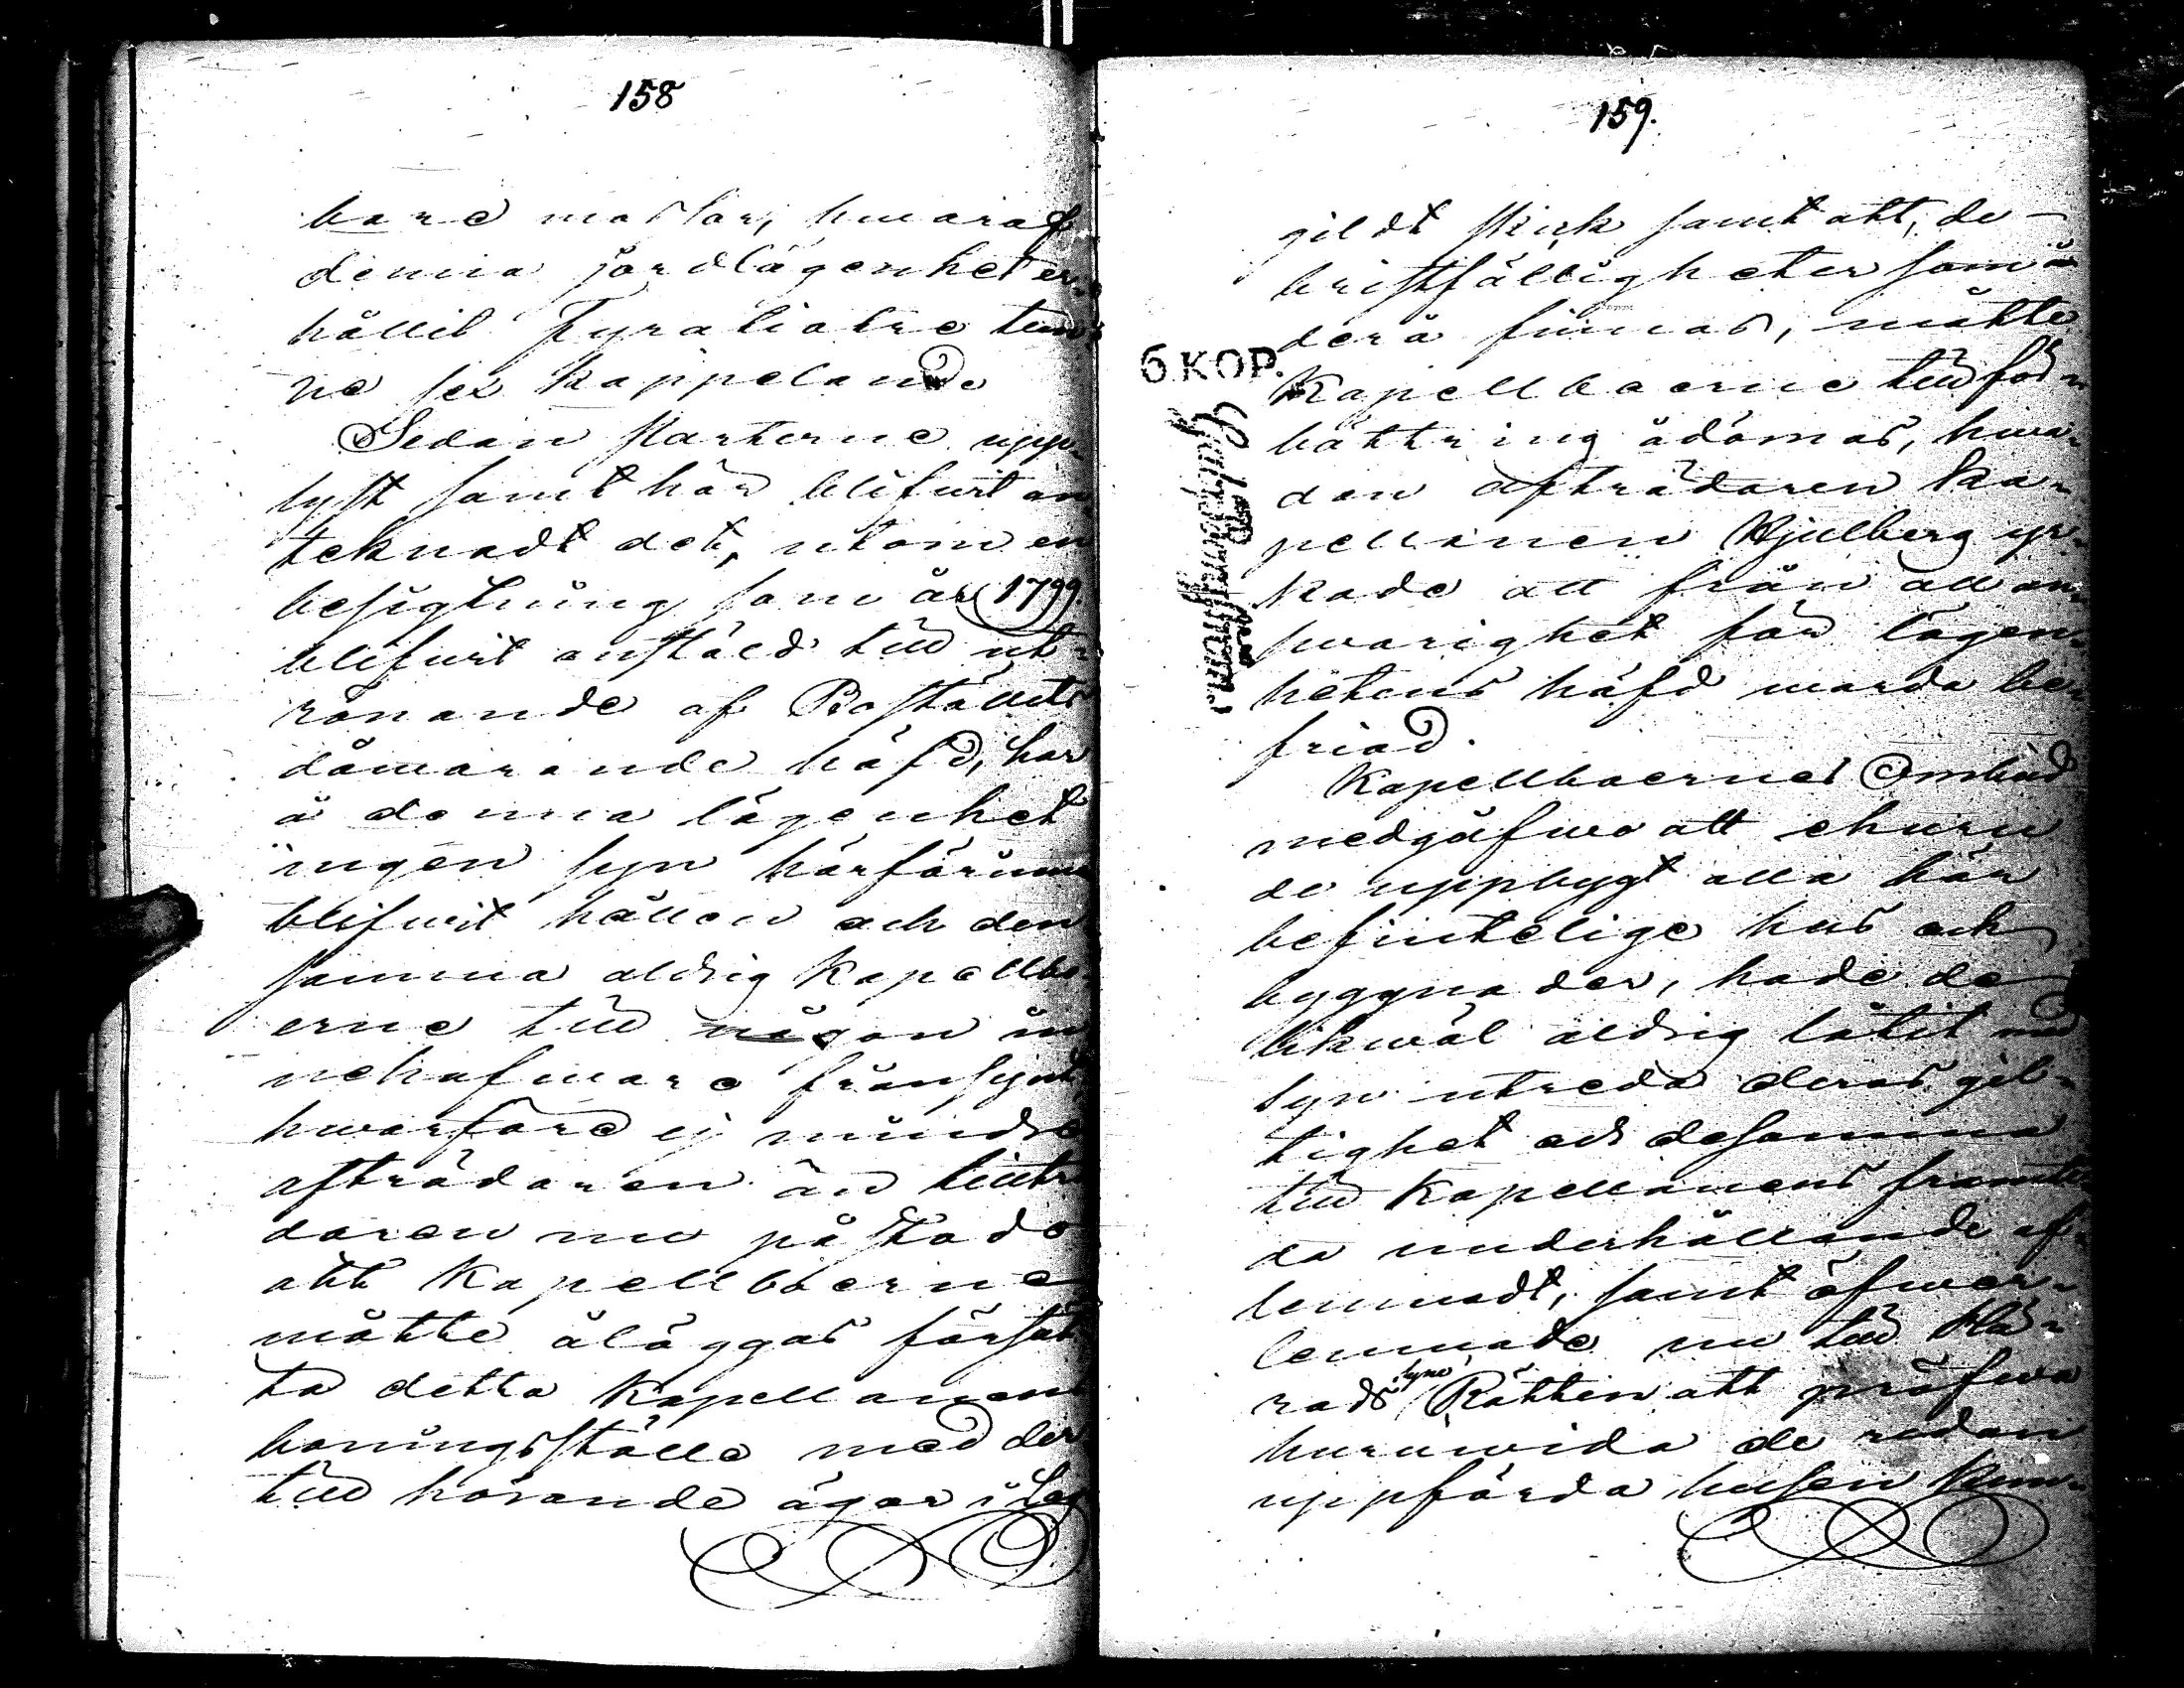 158
bare mark, hwaraf
denna jordlägenhet er-
hållit Fyratiotre tun-
ne sex kappeland
Sedan Parterne upp-
lyst samt här blifwit an-
teknadt det, utom en
besigtning som år 1799.
blifwit anstäld till ut-
rönande af Boställets
dåwarande häfd, har
å denna lägenhet
ingen syn härförinnan
blifwit hållen och den
samma aldrig Kapellbo-
erne till någon in
nehafware frånsynt,
hwarföre ej mindre
afträdaren än tillträ
daren nu påstode
att Kapellboerne
måtte åläggas försät
ta detta Kapellanens
boningsställe med der
till hörande ägor i lag
159.
gildt skick samt att, de
bristfälligheter som å
derå finnas, måtte
Kapellboerne till för-
bättring ådömas, hwar-
den afträdaren Ka-
pellanen Hjulberg yr-
kade att från all an-
swarighet för lägen-
hetens häfd warda be-
friad.
Kapellboernes Ombud
medgåfwo att ehuru
de uppbygt alla här
befintelige hus och
byggnader, hade de
likwäl aldrig låtit med
syn utreda deras gil-
tighet och desamma
till Kapellanens framti
da underhållande af-
lemnadt, samt öfwer-
lemnade nu till Hä-
rads syne Rätten att pröfwa
huruwida de redan
uppförda husen kun-
6 KOP.